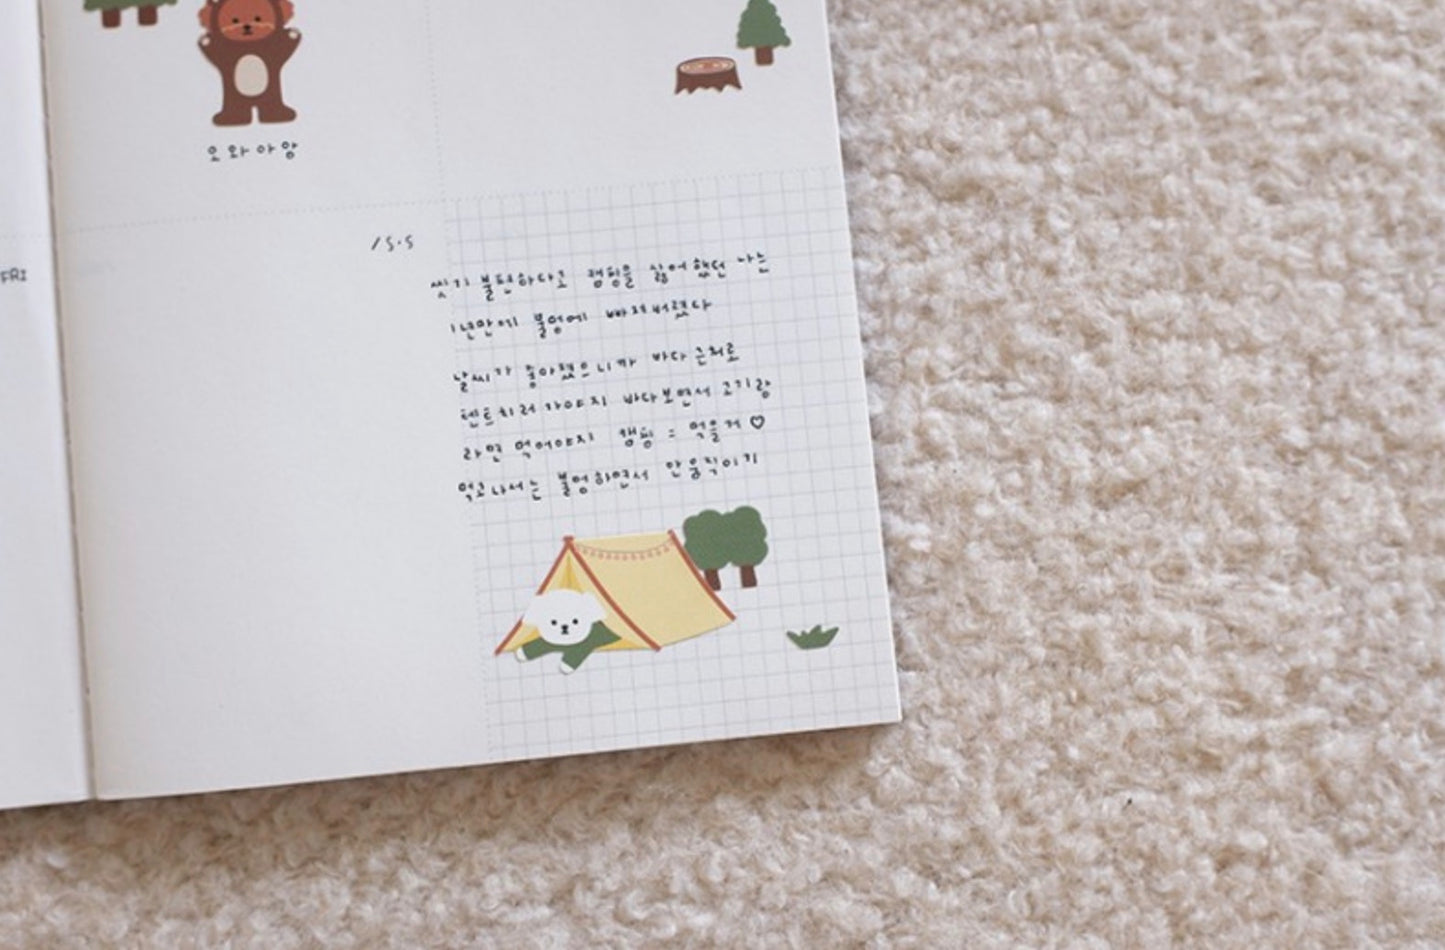 오와아앙
FRI
/5.5
씻기 불편하다고 캠핑을 싫어했던 나는
1년만에 불멍에 빠져버렸다
날씨가 좋아졌으니까 바다 근처로
텐트치러 가야지 바다보면서 고기랑
라면 먹어야지 캠핑 = 먹을거 ♡
먹고나서는 불멍하면서 안움직이기